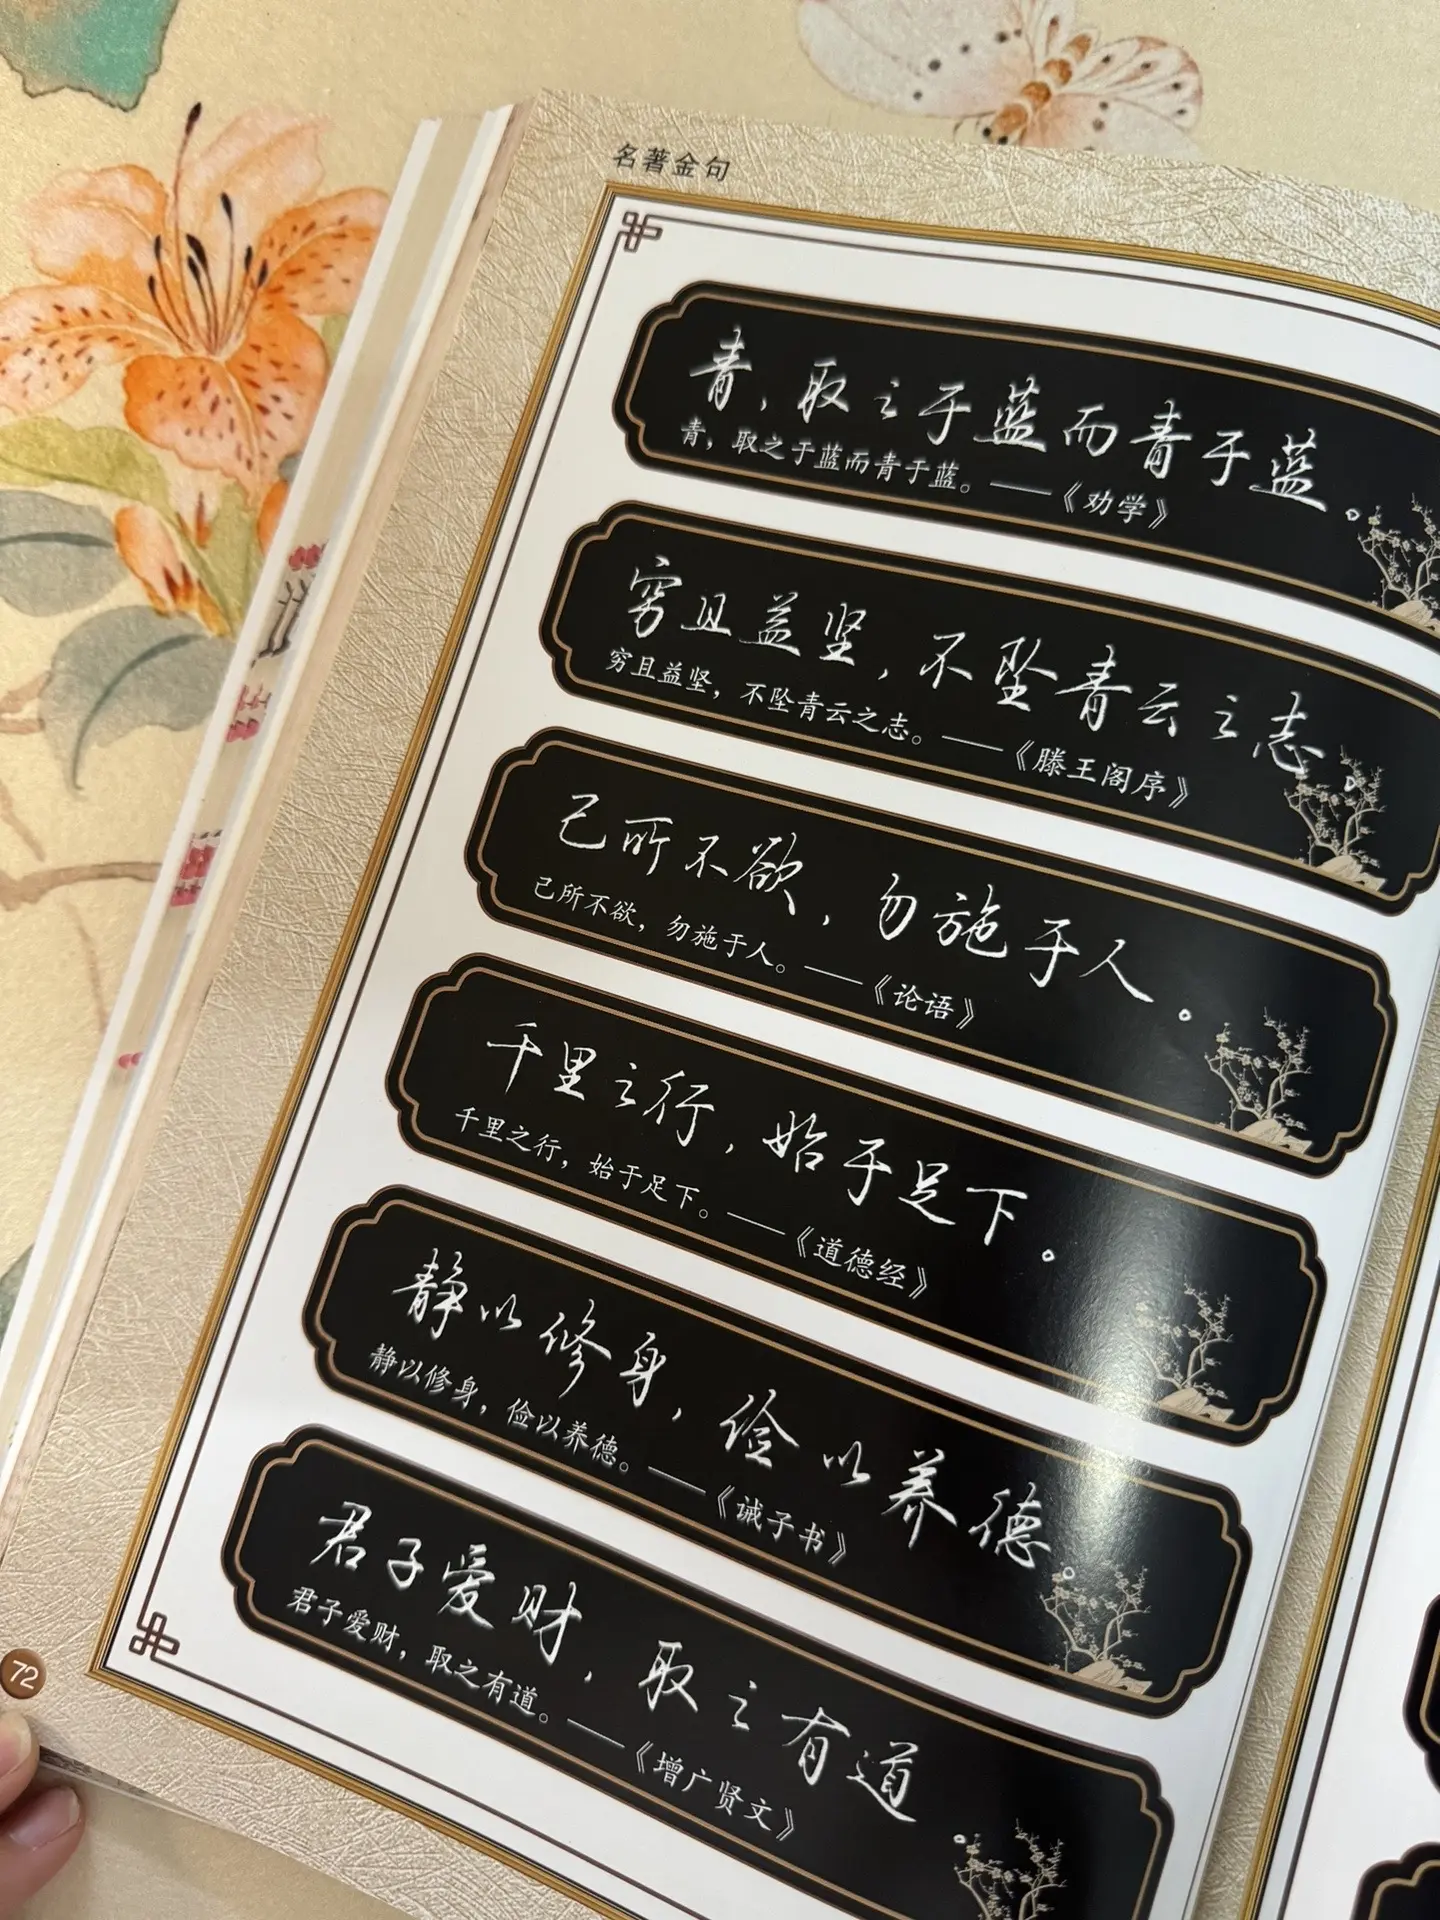 名著金句
青，取之于蓝而青于蓝。
青，取之于蓝而青于蓝。——《劝学》
穷且益坚，不坠青云之志。
穷且益坚，不坠青云之志。——《滕王阁序》
己所不欲，勿施于人。
己所不欲，勿施于人。——《论语》
千里之行，始于足下。
千里之行，始于足下。——《道德经》
静以修身，俭以养德。
静以修身，俭以养德。——《诫子书》
君子爱财，取之有道。
君子爱财，取之有道。——《增广贤文》
72